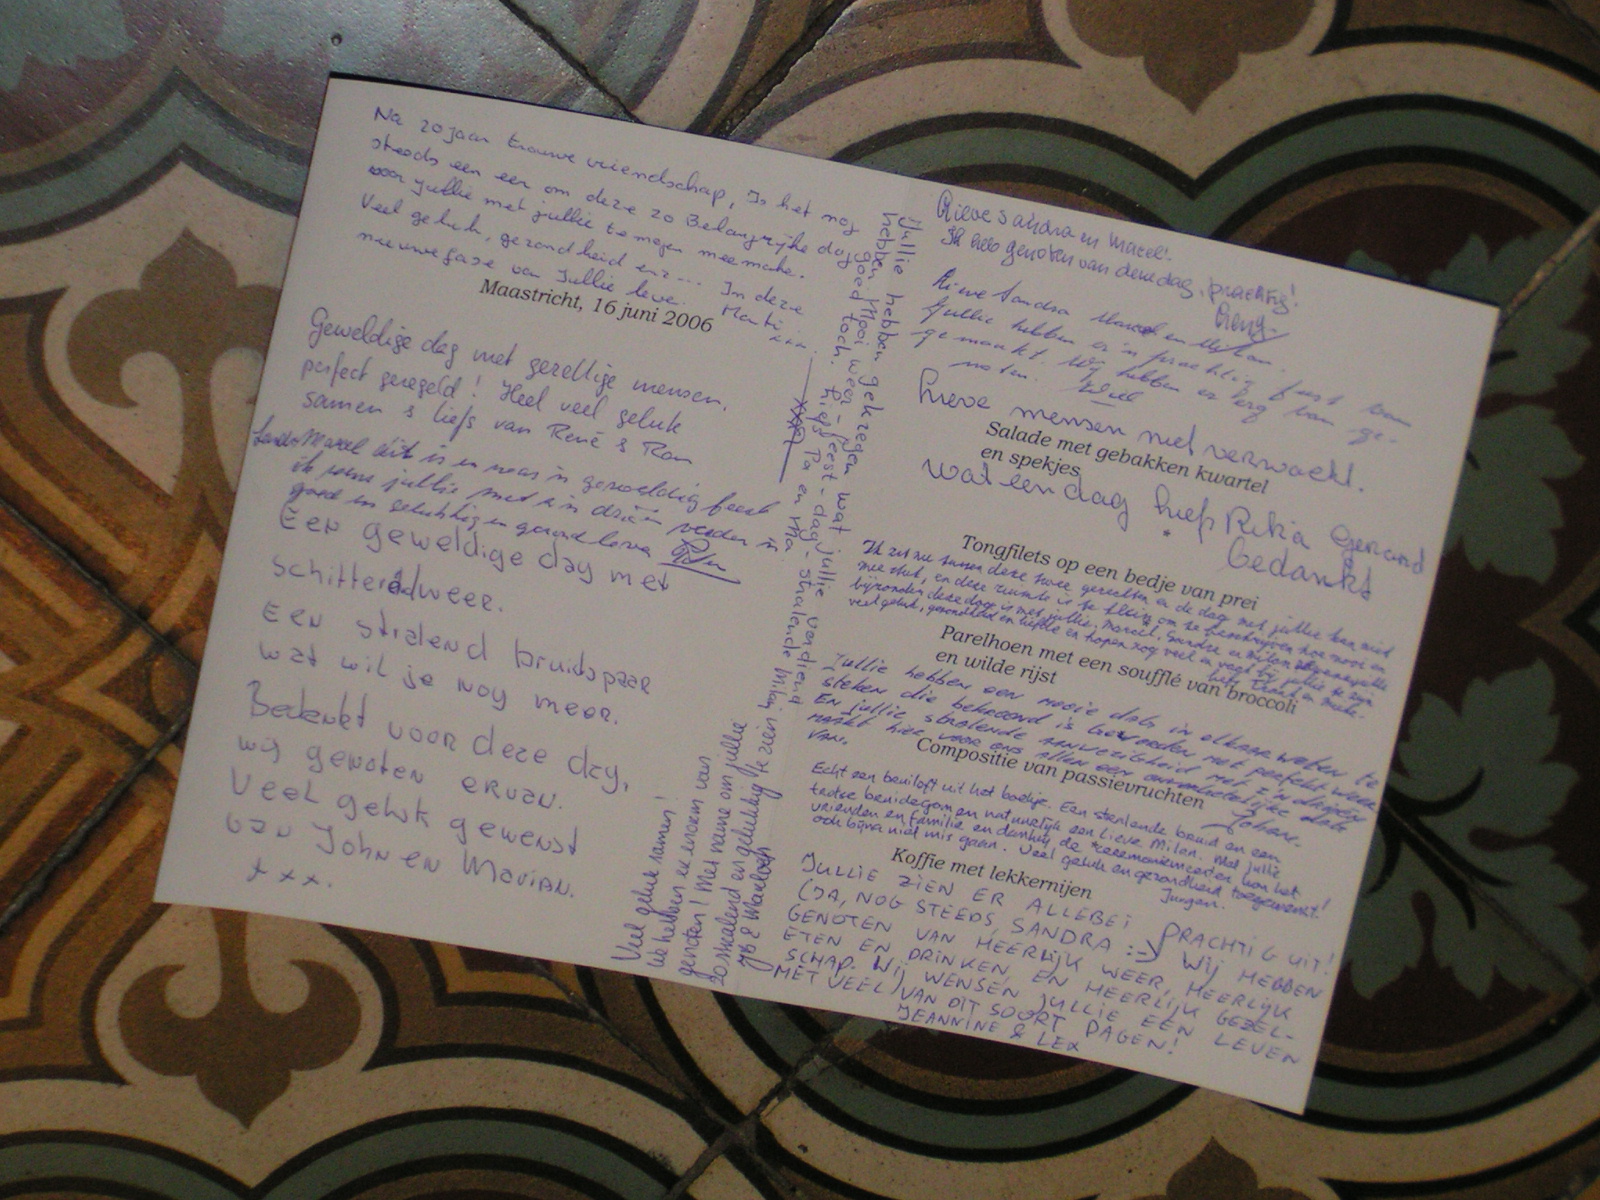 Na 20 jaar trouwe vriendschap, Is het nog
steeds een eer om deze zo Belangrijke dag
voor jullie met jullie te mogen meemake.
Veel geluk, gezondheid enz... In deze
nieuwe fase van Jullie leve.
Maastricht, 16 juni 2006
Geweldige dag met gezellige mensen,
perfect geregeld! Heel veel geluk
samen & liefs van René & Ron
Marcel dit is en was 'n geweldig feest
ik wens jullie met z'n drieën verder 'n
goed en gelukkig en gezond leven
Een geweldige dag met
schitterend weer.
Een stralend bruidspaar
wat wil je nog meer.
Bedankt voor deze dag,
wij genoten ervan.
Veel geluk gewenst
van John en Marian.
xxx.
Veel geluk samen!
We hebben ervan
genoten! Met name om jullie
zo stralend en gelukkig te zien
Jullie hebben gekregen wat jullie verdiend
hebben. Mooi weer - feest - dag - stralende
goed toch. Liefs Pa en Ma.
Lieve Sandra en Marcel!
Ik heb genoten van deze dag, prachtig!
Lieve Sandra Marcel en Milan.
Jullie hebben er 'n prachtig feest van
gemaakt. Wij hebben er erg van ge-
noten. Wiel
Lieve mensen niet verwacht.
Salade met gebakken kwartel
en spekjes
wat een dag liefs Rikia Gerard
Bedankt
Tongfilets op een bedje van prei
Ik zit nu tussen deze twee gerechten en de dag met jullie kan niet
mee stuk, en deze ruimte is te klein om te beschrijven hoe mooi en
bijzonder deze dag is met jullie, Marcel, Sandra en Milan
veel geluk, gezondheid en liefde en hopen nog veel en vaak bij jullie te zijn
Parelhoen met een soufflé van broccoli
en wilde rijst
Jullie hebben een mooie dag in elkaar weten te
steken die bekroond is geworden met perfekt weer
En jullie stralende aanwezigheid met z'n drieën
maakt hier voor ons allen een onvergetelijke dag
van.
Compositie van passievruchten
Echt een bruiloft uit het boekje. Een stralende bruid en een
trotse bruidegom en natuurlijk een lieve Milan. Met jullie
vrienden en familie en dankzij de ceremoniemeester kon het
ook bijna niet mis gaan. Veel geluk en gezondheid toegewenst!
Jurgen.
Koffie met lekkernijen
JULLIE ZIEN ER ALLEBEI PRACHTIG UIT!
(JA, NOG STEEDS, SANDRA :-) WIJ HEBBEN
GENOTEN VAN HEERLIJK WEER, HEERLIJK
ETEN EN DRINKEN EN HEERLIJK GEZEL-
SCHAP. WIJ WENSEN JULLIE EEN LEVEN
MET VEEL VAN DIT SOORT DAGEN!
JEANNINE & LEX